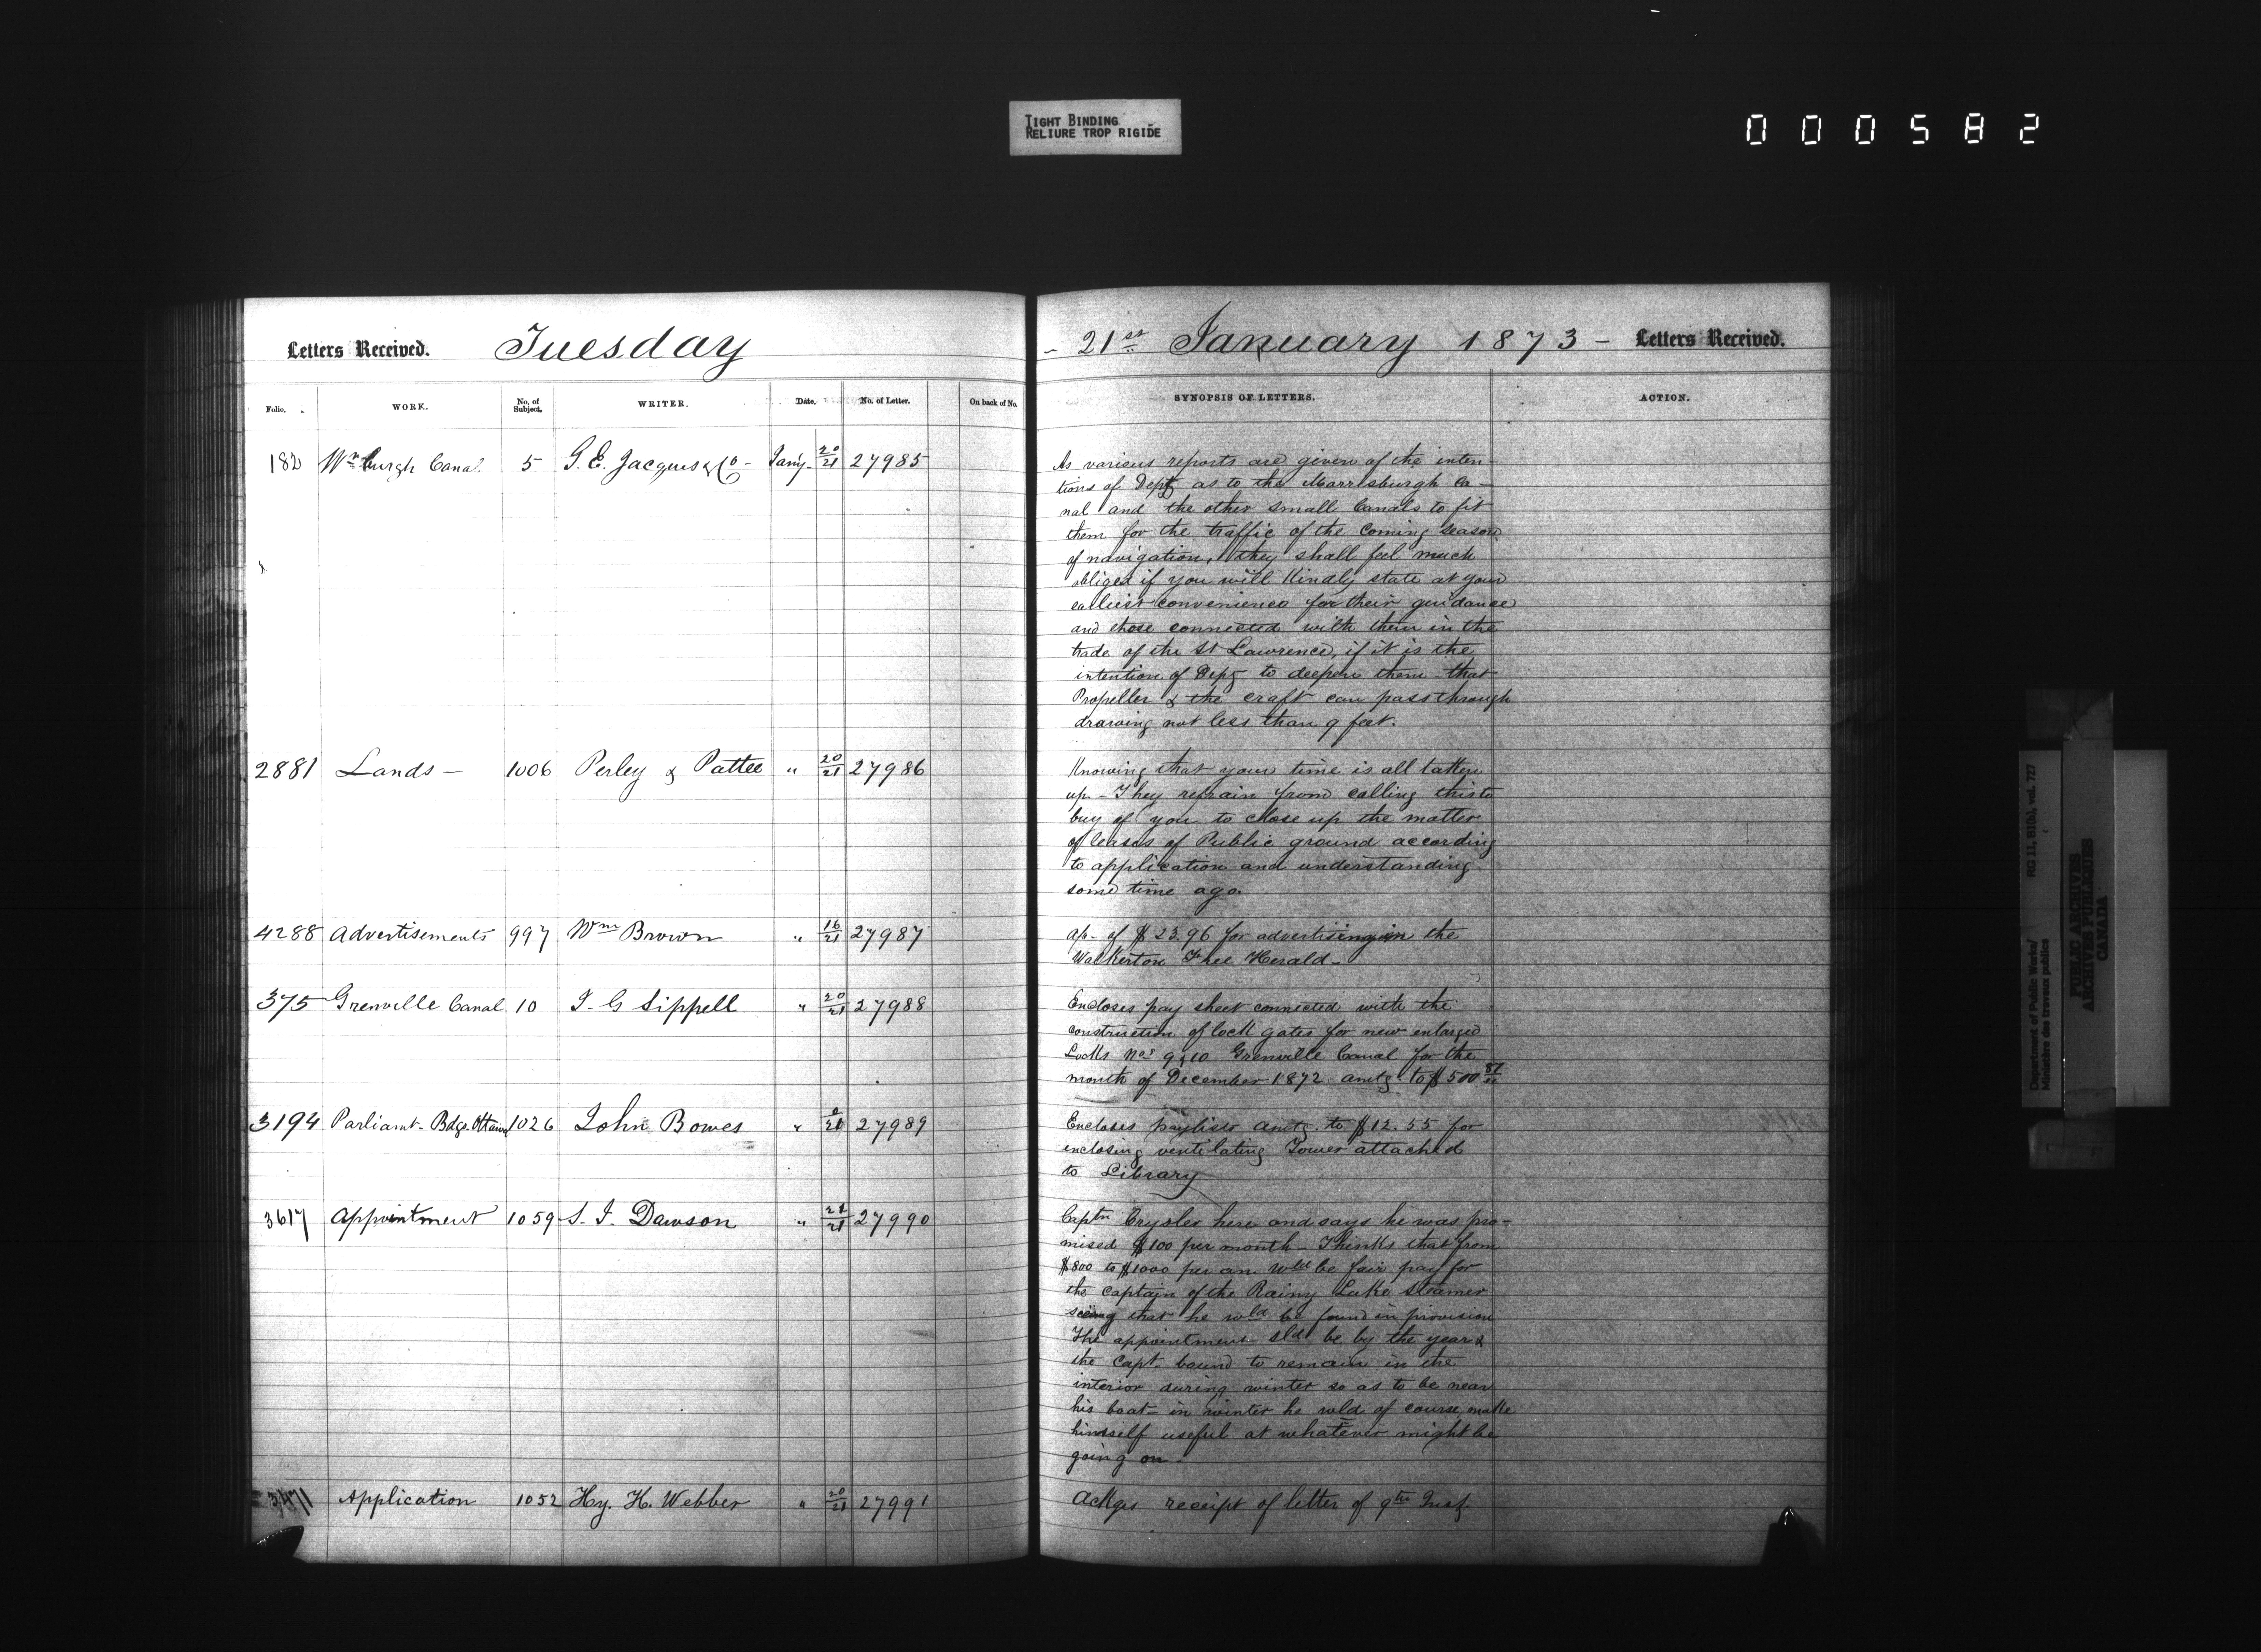 TIGHT BINDING
RELIURE TROP RIGIDE
000582
Letters Received. Tuesday - 21st January 1873 - Letters Received.
Folio. WORK. No. of Subject. WRITER. Date. No. of Letter. On back of No. SYNOPSIS OF LETTERS. ACTION.
182 Wmburgh Canal 5 G. E. Jacques & Co - Jany- 20/21 27985
As various reports are given of the inten-
tions of Dept as to the Morrisburgh Ca-
nal and the other small Canals to fit
them for the traffic of the coming season
of navigation, they shall feel much
obliged if you will kindly state at your
earliest convenience for their guidance
and those connected with them in the
trade of the St Lawrence, if it is the
intention of Dept to deepen them that
Propeller & the craft can pass through
drawing not less than 9 feet.
2881 Lands - 1006 Perley & Pattee " 20/21 27986
Knowing that your time is all taken
up - They refrain from calling this to
buy of you to close up the matter
of leases of Public ground according
to application and understanding
some time ago.
4288 Advertisements 997 Wm Brown " 16/21 27987
ap. of $23.96 for advertising in the
Walkerton Free Herald -
375 Grenville Canal 10 J. G Sippell " 20/21 27988
Encloses pay sheet connected with the
construction of lock gates for new enlarged
Locks Nos 9 & 10 Grenville Canal for the
month of December 1872 amtg to $500
3194 Parliamt. Bdgs. Ottawa 1026 John Bowes " 27989
Encloses paylist amtg. to $12.55 for
enclosing ventilating Tower attached
to Library
3617 Appointment 1059 S. J. Dawson " 21/21 27990
Captn Crysler here and says he was pro-
mised $100 per month - Thinks that from
$800 to $1000 per an wld be fair pay for
the Captain of the Rainy Lake Steamer
seeing that he wld be found in provision
The appointment sld be by the year &
the Capt. bound to remain in the
interior during winter so as to be near
his boat - in winter he wld of course make
himself useful at whatever might be
going on.
3471 Application 1052 Hy. H. Webber " 20/21 27991
Ackges receipt of letter of 9th Inst.
Department of Public Works/ RG 11, B1(b), vol. 727
Ministère des travaux publics
PUBLIC ARCHIVES
ARCHIVES PUBLIQUES
CANADA